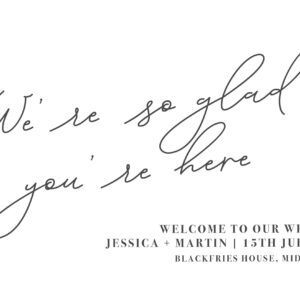 We're so glad
you're here
WELCOME TO OUR WE
JESSICA + MARTIN | 15TH JUL
BLACKFRIES HOUSE, MID